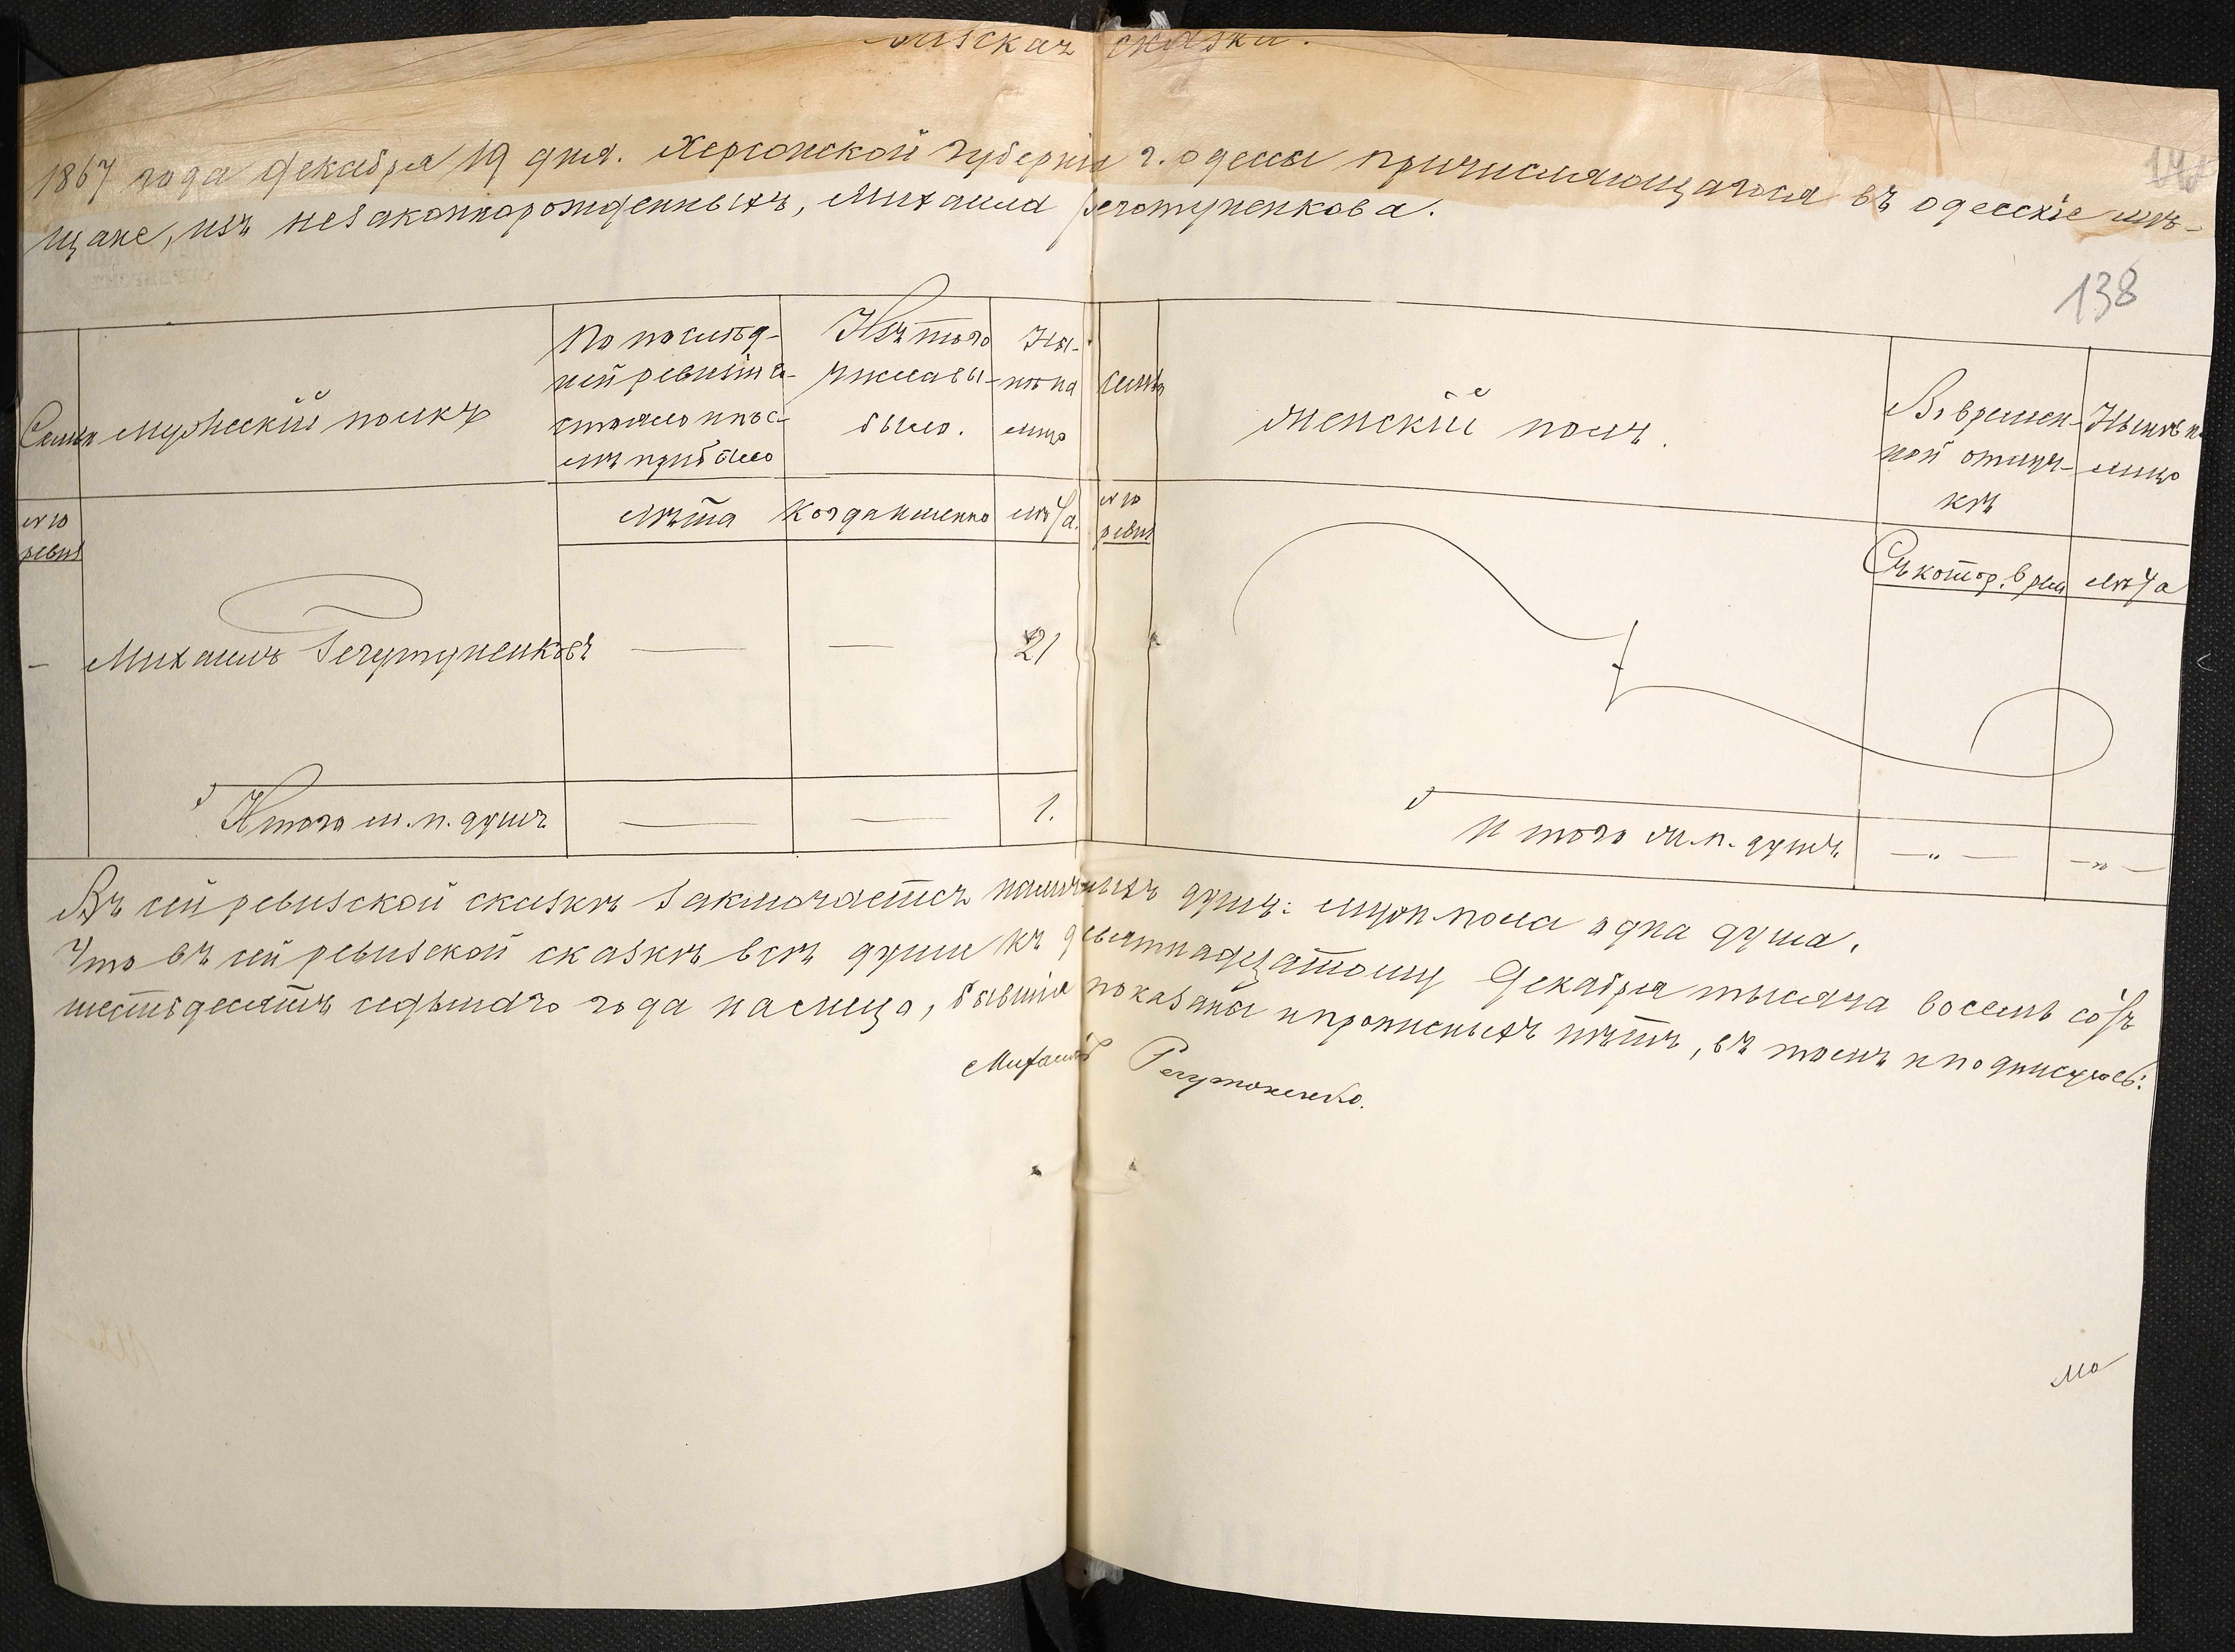 сказка.
1867 года Декабря 19 дня. Херсонской губерніи г. Одессы причисляющагося въ одесскіе мѣ-
щане, изъ незаконнорожденныхъ, Михаила
138
Семья
Мужескій полкъ
По послѣд-
ней ревизіи со-
стояло и пос-
лѣ прибыло
Изъ того
числа вы-
было.
Ны-
нѣ на
лицо
Семья
Женскій полъ.
Во времен-
ной отлуч-
кѣ
Нынѣ на
лицо
№ по
ревиз
Лѣта
Когда именно
Лѣта.
№ по
ревиз
Съ котор. врем
Лѣта
— Михаилъ — — 21
Итого м. п. душъ — — 1.
И того м. п. душъ — „ — — „ —
Въ сей ревизской сказкѣ заключается наличныхъ душъ: муж. пола одна душа.
Что въ сей ревизской сказкѣ всѣ души къ девятнадцатому Декабря тысяча восемь сотъ
шестьдесятъ седьмаго года на лицо, бывшія показаны и прописныхъ нѣтъ, въ томъ и подписуюсь:
Михаилъ